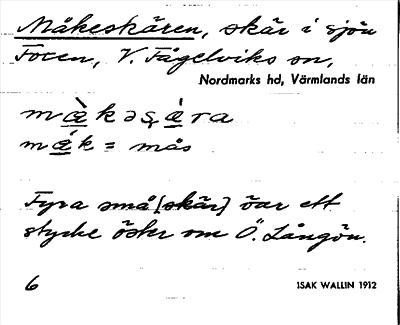 Måkeskären, skär i sjön
Foxen, V. Fågelviks sn,
Nordmarks hd, Värmlands län
mæ̀kəʂǽra
mǽk = mås
Fyra små [skär] öar ett
stycke öster om Ö. Långön.
6
ISAK WALLIN 1912